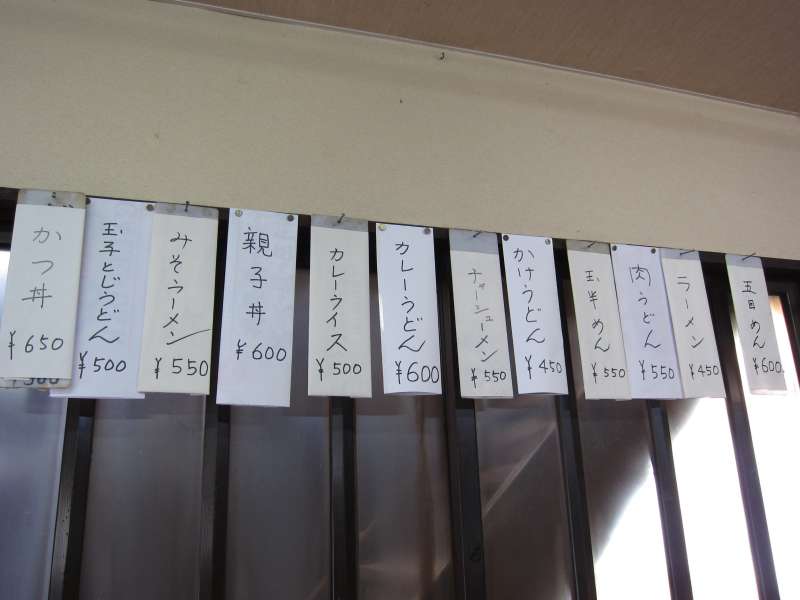 かつ丼
¥650
玉子とじうどん
¥500
みそラーメン
¥550
親子丼
¥600
カレーライス
¥500
カレーうどん
¥600
チャーシューメン
¥550
かけうどん
¥450
玉半めん
¥550
肉うどん
¥550
ラーメン
¥450
五目めん
¥600